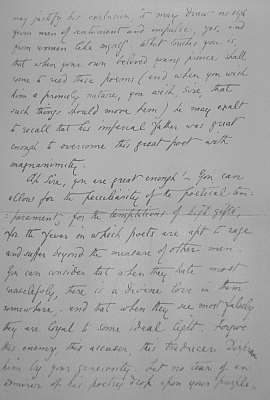 may justify his exclusion, it may draw no sigh
from men of sentiment and impulse, yes, and
from women like myself. What touches you is,
that when your own beloved young prince shall
come to read these poems (and when you wish
him a princely nature, you wish, Sire, that
such things should move him) he may exult
to recall that his imperial father was great
enough to overcome this great poet with
magnanimity.
Ah Sire, you are great enough! You can
allow for the peculiarity of the poetical tem-
-perament, for the temptations of high gifts,
for the fever in which poets are apt to rage
and suffer beyond the measure of other men.
You can consider that when they hate most
causelessly, there is a divine love in them
somewhere, and that when they see most falsely
they are loyal to some ideal light. Forgive
this enemy, this accuser, this traducer. Disprove
him by your generosity. Let no tear of an
admirer of his poetry drop upon your purple.